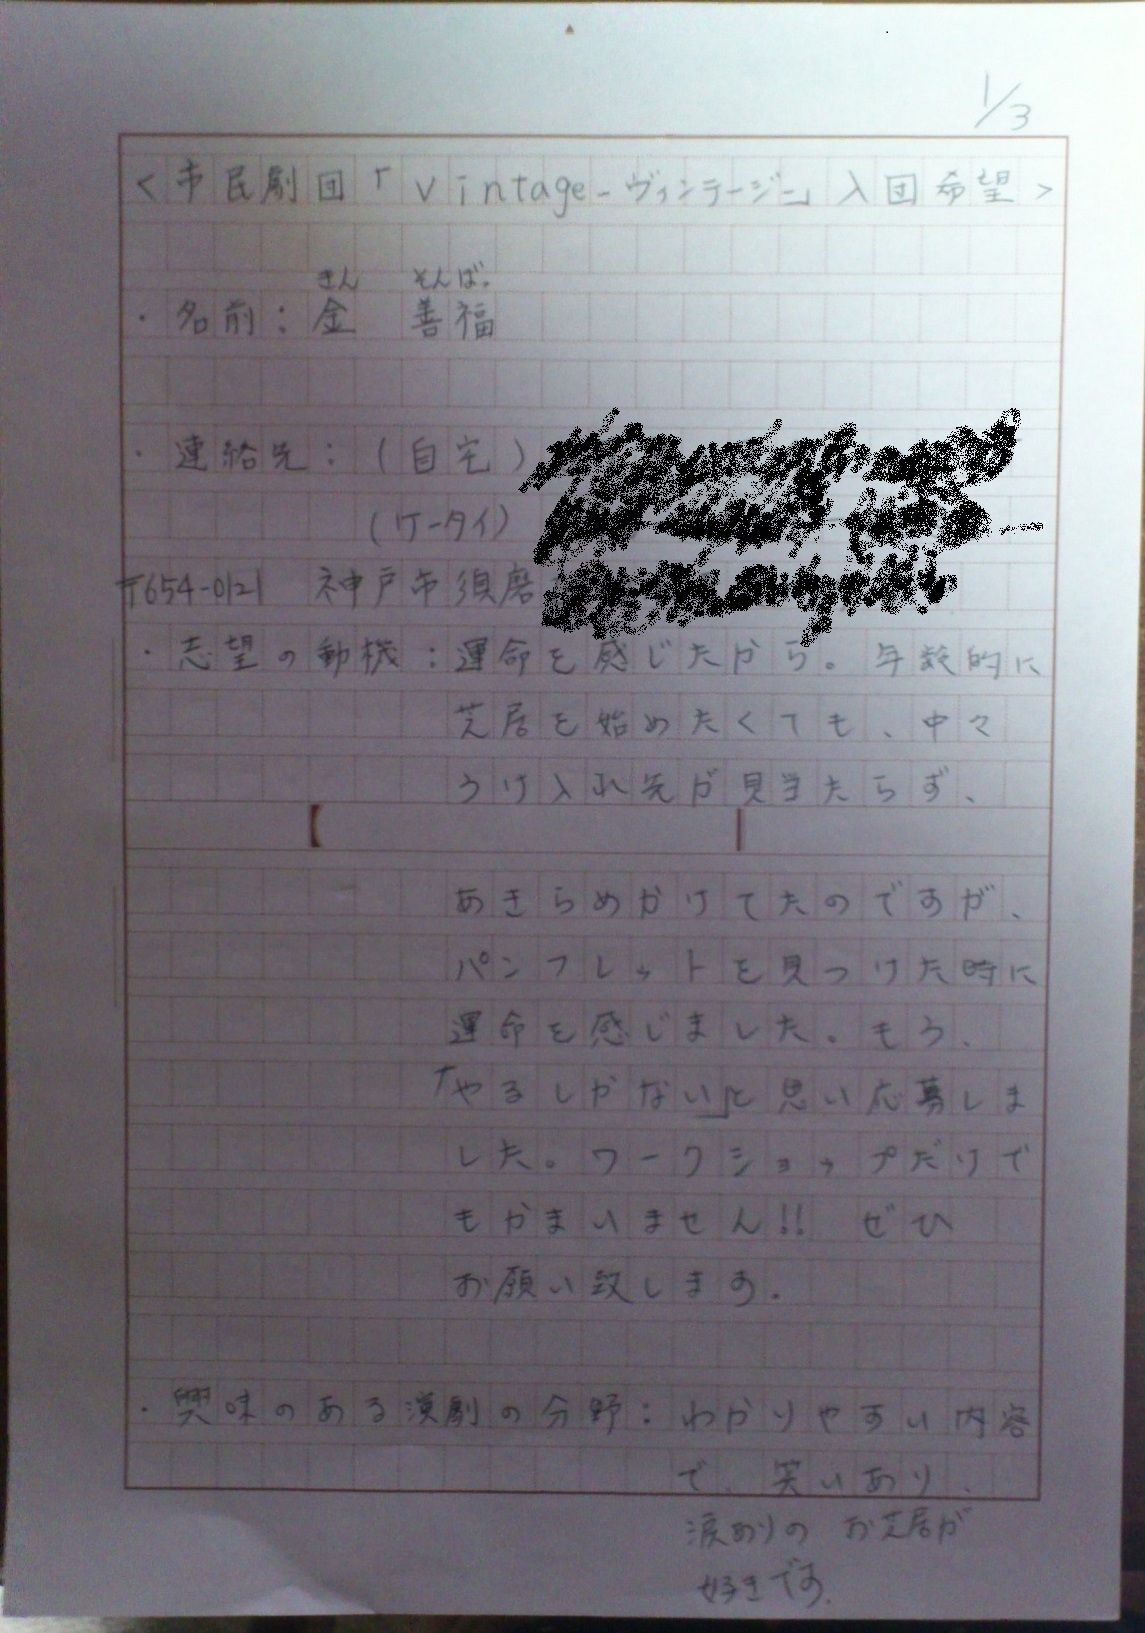 1/3
<市民劇団「vintage-ヴィンテージ-」入団希望>
きん そんぼ
・名前：金 善福
・連絡先：(自宅)
(ケータイ)
〒654-0121 神戸市須磨
・志望の動機：運命を感じたから。年数的に
芝居を始めたくても、中々
うけ入れ先が見当たらず、
あきらめかけてたのですが、
パンフレットを見つけた時に
運命を感じました。もう、
「やるしかない」と思い応募しま
した。ワークショップだけで
もかまいません!! ぜひ
お願い致します。
・興味のある演劇の分野：わかりやすい内容
で、笑いあり、
涙ありの お芝居が
好きです。